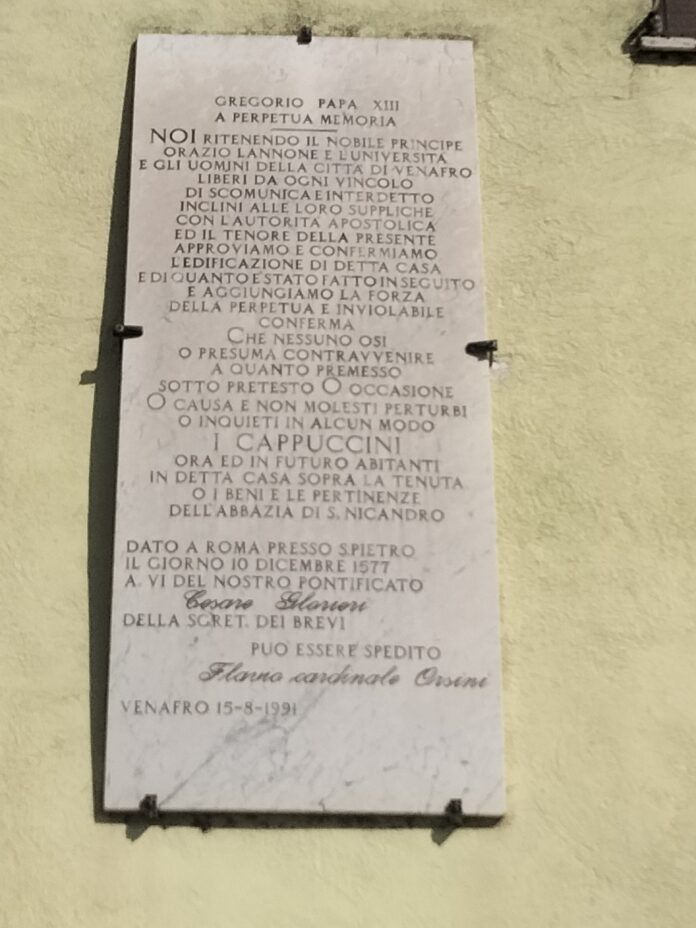 GREGORIO PAPA XIII
A PERPETUA MEMORIA
NOI RITENENDO IL NOBILE PRINCIPE
ORAZIO LANNONE E L'UNIVERSITÀ
E GLI UOMINI DELLA CITTÀ DI VENAFRO
LIBERI DA OGNI VINCOLO
DI SCOMUNICA E INTERDETTO
INCLINI ALLE LORO SUPPLICHE
CON L'AUTORITÀ APOSTOLICA
ED IL TENORE DELLA PRESENTE
APPROVIAMO E CONFERMIAMO
L'EDIFICAZIONE DI DETTA CASA
E DI QUANTO È STATO FATTO IN SEGUITO
E AGGIUNGIAMO LA FORZA
DELLA PERPETUA E INVIOLABILE
CONFERMA
CHE NESSUNO OSI
O PRESUMA CONTRAVVENIRE
A QUANTO PREMESSO
SOTTO PRETESTO O OCCASIONE
O CAUSA E NON MOLESTI PERTURBI
O INQUIETI IN ALCUN MODO
I CAPPUCCINI
ORA ED IN FUTURO ABITANTI
IN DETTA CASA SOPRA LA TENUTA
O I BENI E LE PERTINENZE
DELL'ABBAZIA DI S. NICANDRO
DATO A ROMA PRESSO S.PIETRO
IL GIORNO 10 DICEMBRE 1577
A. VI DEL NOSTRO PONTIFICATO
Cesare Glorieri
DELLA SGRET. DEI BREVI
PUO ESSERE SPEDITO
Flavio cardinale Orsini
VENAFRO 15-8-1991